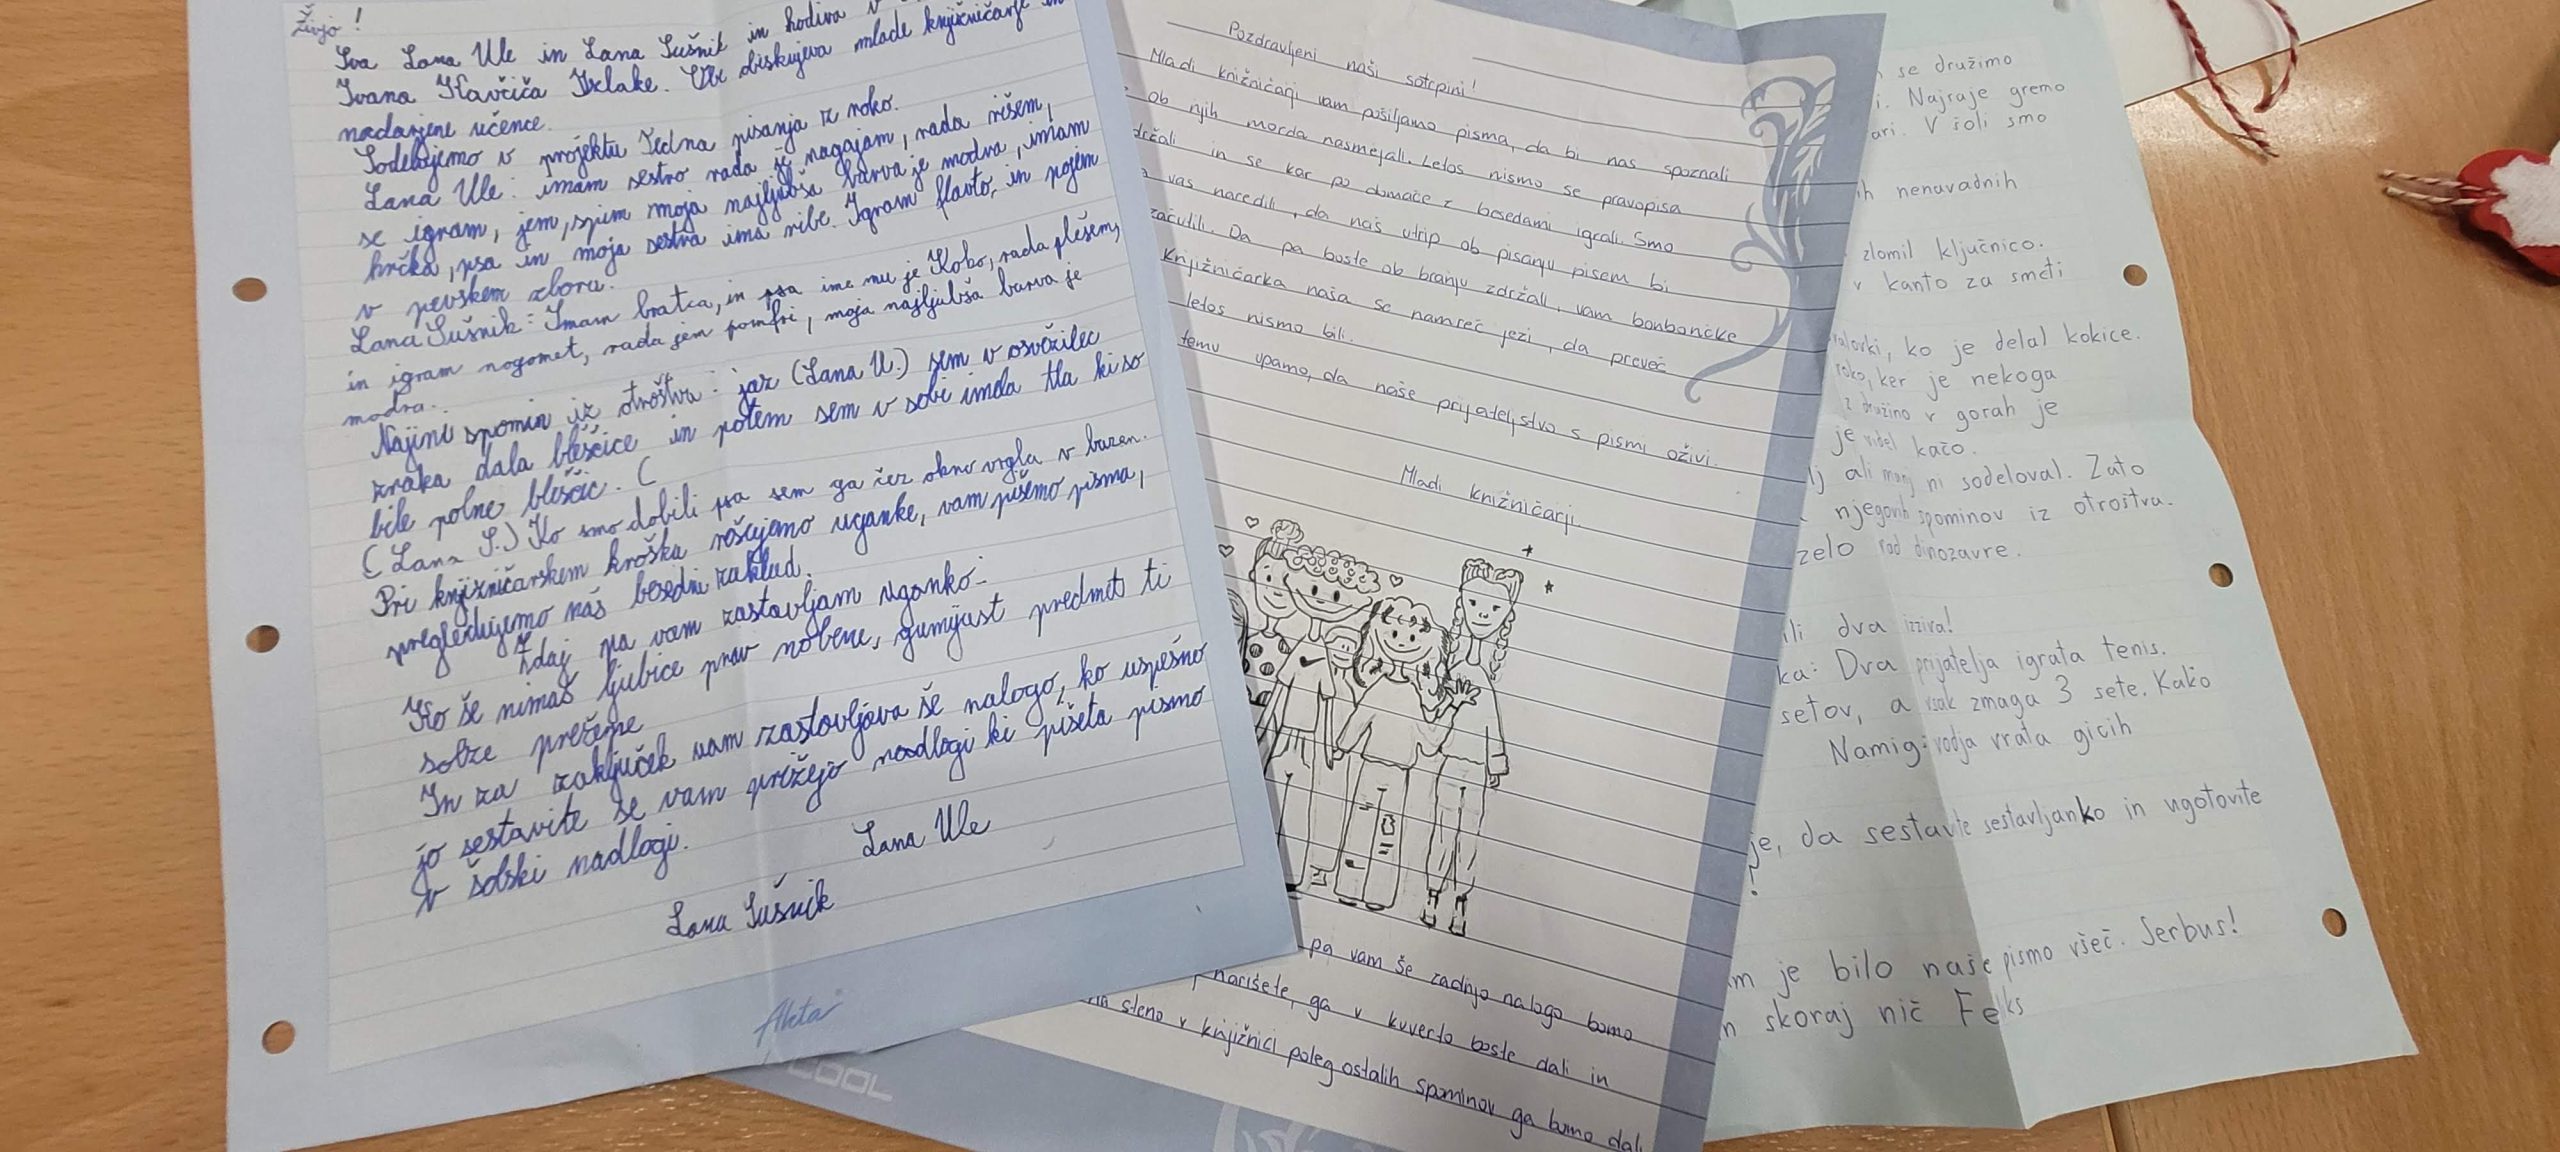 Živjo!
Sva Lana Ule in Lana Sušnik in hodiva v
Ivana Kavčiča Izlake. Obe obiskujeva mlade knjižničarje in
nadarjene učence.
Sodelujemo v projektu Tedna pisanja z roko.
Lana Ule: imam sestro rada jo nagajam, rada rišem,
se igram, jem, spim moja najljubša barva je modra, imam
hrčka, psa in moja sestra ima ribe. Igram flavto, in pojem
v pevskem zboru.
Lana Sušnik: Imam bratca, in psa ime mu je Kobo, rada plešem,
in igram nogomet, rada jem pomfri, moja najljubša barva je
modra.
Najini spomin iz otroštva: jaz (Lana U.) sem v osvežilec
zraka dala bleščice in potem sem v sobi imela tla ki so
bile polne bleščic. (
(Lana S.) Ko smo dobili psa sem ga čez okno vrgla v bazen.
Pri knjižničarskem krožku rešujemo uganke, vam pišemo pisma,
pregledujemo naš besedni zaklad.
Zdaj pa vam zastavljam uganko:
Ko še nimaš ljubice prav nobene, gumijast predmet ti
solze prežene
In za zaključek vam zastavljava še nalogo, ko uspešno
jo sestavite se vam prižejo nadlogi ki pišeta pismo
v šolski nadlogi.
Lana Ule
Lana Sušnik
Akta
Pozdravljeni naši sotrpini!
Mladi knižničarji vam pošiljamo pisma, da bi nas spoznali
ob njih morda nasmejali. Letos nismo se pravopisa
držali in se kar po domače z besedami igrali. Smo
vas naredili, da naš utrip ob pisanju pisem bi
začutili. Da pa boste ob branju zdržali, vam bonbončke
Knjižničarka naša se namreč jezi, da preveč
letos nismo bili.
temu upamo, da naše prijateljstvo s pismi oživi.
Mladi knižničarji.
pa vam še zadnjo nalogo bomo
narišete, ga v kuverto boste dali in
steno v knjižnici poleg ostalih spominov ga bomo dali
COOL
se družimo
i. Najraje gremo
ari. V šoli smo
ih nenavadnih
zlomil ključnico.
v kanto za smeti
valovki, ko je delal kokice.
roko, ker je nekoga
z družino v gorah je
je videl kačo.
lj ali manj ni sodeloval. Zato
njegovih spominov iz otroštva.
zelo rad dinozavre.
ili dva izziva!
ka: Dva prijatelja igrata tenis.
setov, a vsak zmaga 3 sete. Kako
Namig: vodja vrata gicih
je, da sestavte sestavljanko in ugotovite
?
m je bilo naše pismo všeč. Serbus!
n skoraj nič Feliks